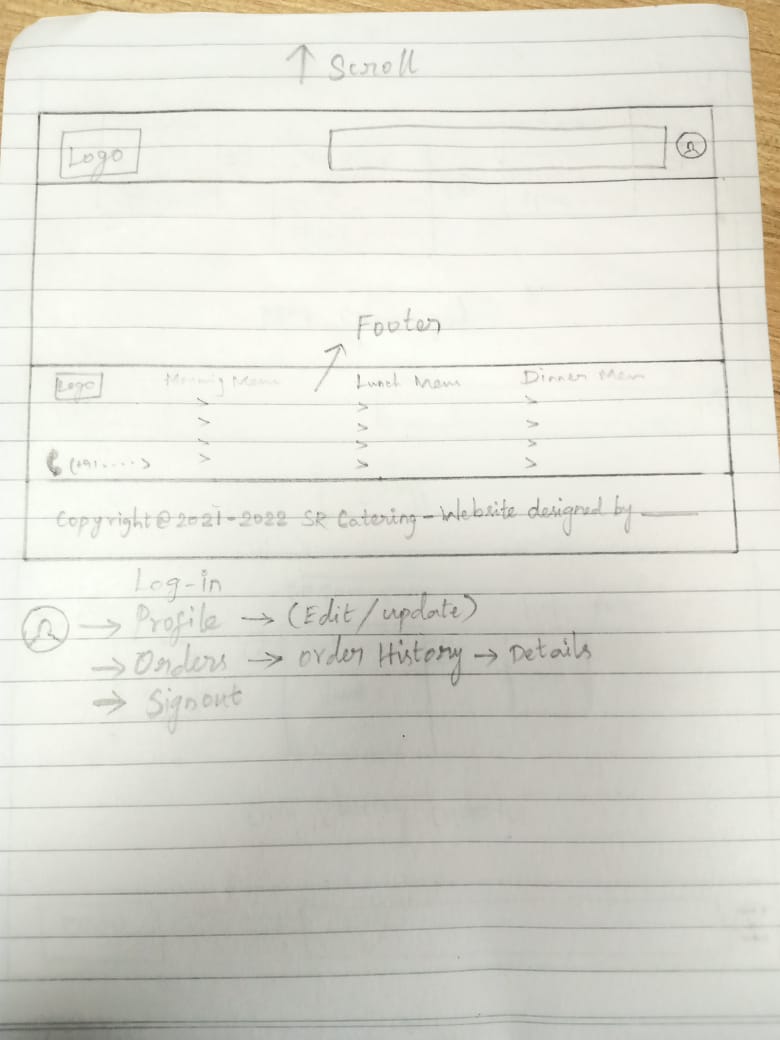 ↑ Scroll
Logo
Footer
Logo Morning Menu Lunch Menu Dinner Menu
> > >
> > >
> > >
> > >
(+91.....>
Copyright @ 2021-2022 SR Catering - Website designed by ____
Log-in
→ Profile → (Edit / update)
→ Orders → order History → Details
→ Signout